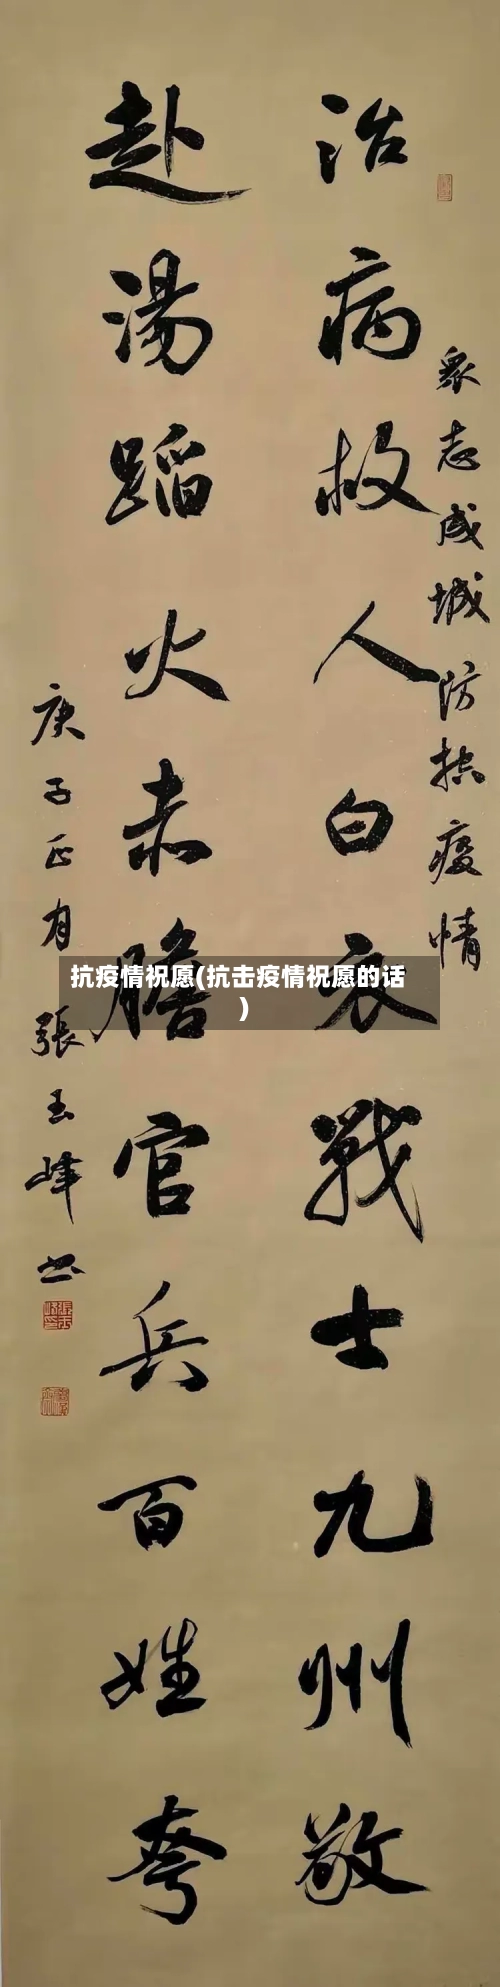 众志成城防控疫情
治病救人白衣戰士九州敬
赴湯蹈火赤膽官兵百姓夸
庚子正月張玉峰书
抗疫情祝愿(抗击疫情祝愿的话
)